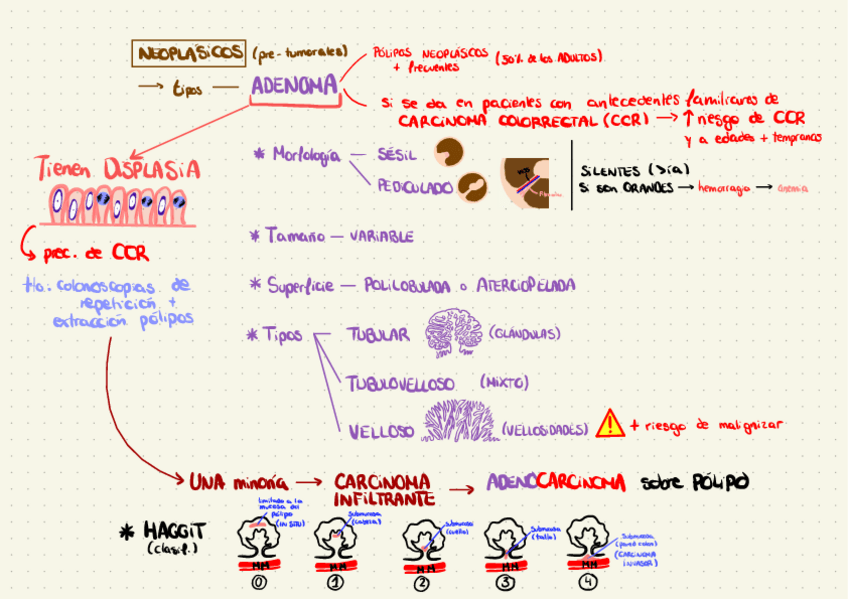 NEOPLÁSICOS (pre-tumorales)
→ tipos — ADENOMA
PÓLIPOS NEOPLÁSICOS (50% de los ADULTOS)
+ frecuentes
Si se da en pacientes con antecedentes familiares de
CARCINOMA COLORRECTAL (CCR) → ↑ riesgo de CCR
y a edades + tempranas
Tienen DISPLASIA
prec. de CCR
tto: colonoscopias de
repetición +
extracción pólipos
* Morfología — SÉSIL
PEDICULADO
SILENTES (>ía)
Si son GRANDES → hemorragia → anemia
* Tamaño — VARIABLE
* Superficie — POLILOBULADA o ATERCIOPELADA
* Tipos — TUBULAR (GLÁNDULAS)
TUBULOVELLOSO (MIXTO)
VELLOSO (VELLOSIDADES) + riesgo de malignizar
UNA minoría → CARCINOMA
INFILTRANTE → ADENOCARCINOMA sobre PÓLIPO
* HAGGIT
(clasif.)
Limitado a la
mucosa del
pólipo
(IN SITU)
MM
0
Submucosa
(cabeza)
MM
1
Submucosa
(cuello)
MM
2
Submucosa
(tallo)
MM
3
Submucosa
(pared colon)
(CARCINOMA
INVASOR)
MM
4